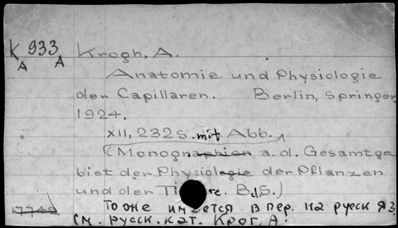 K 933 Krogh, A.
A A
Anatomie und Physiologie
der Capillaren. Berlin, Springer,
1924.
XII, 232 S. mit Abb.
(Monographien a. d. Gesamtge
biet der Physiologie der Pflanzen
und der Tiere. Bd. 5.)
То же имеется в пер. на русск яз.
см. русск. кат. Крог, А.